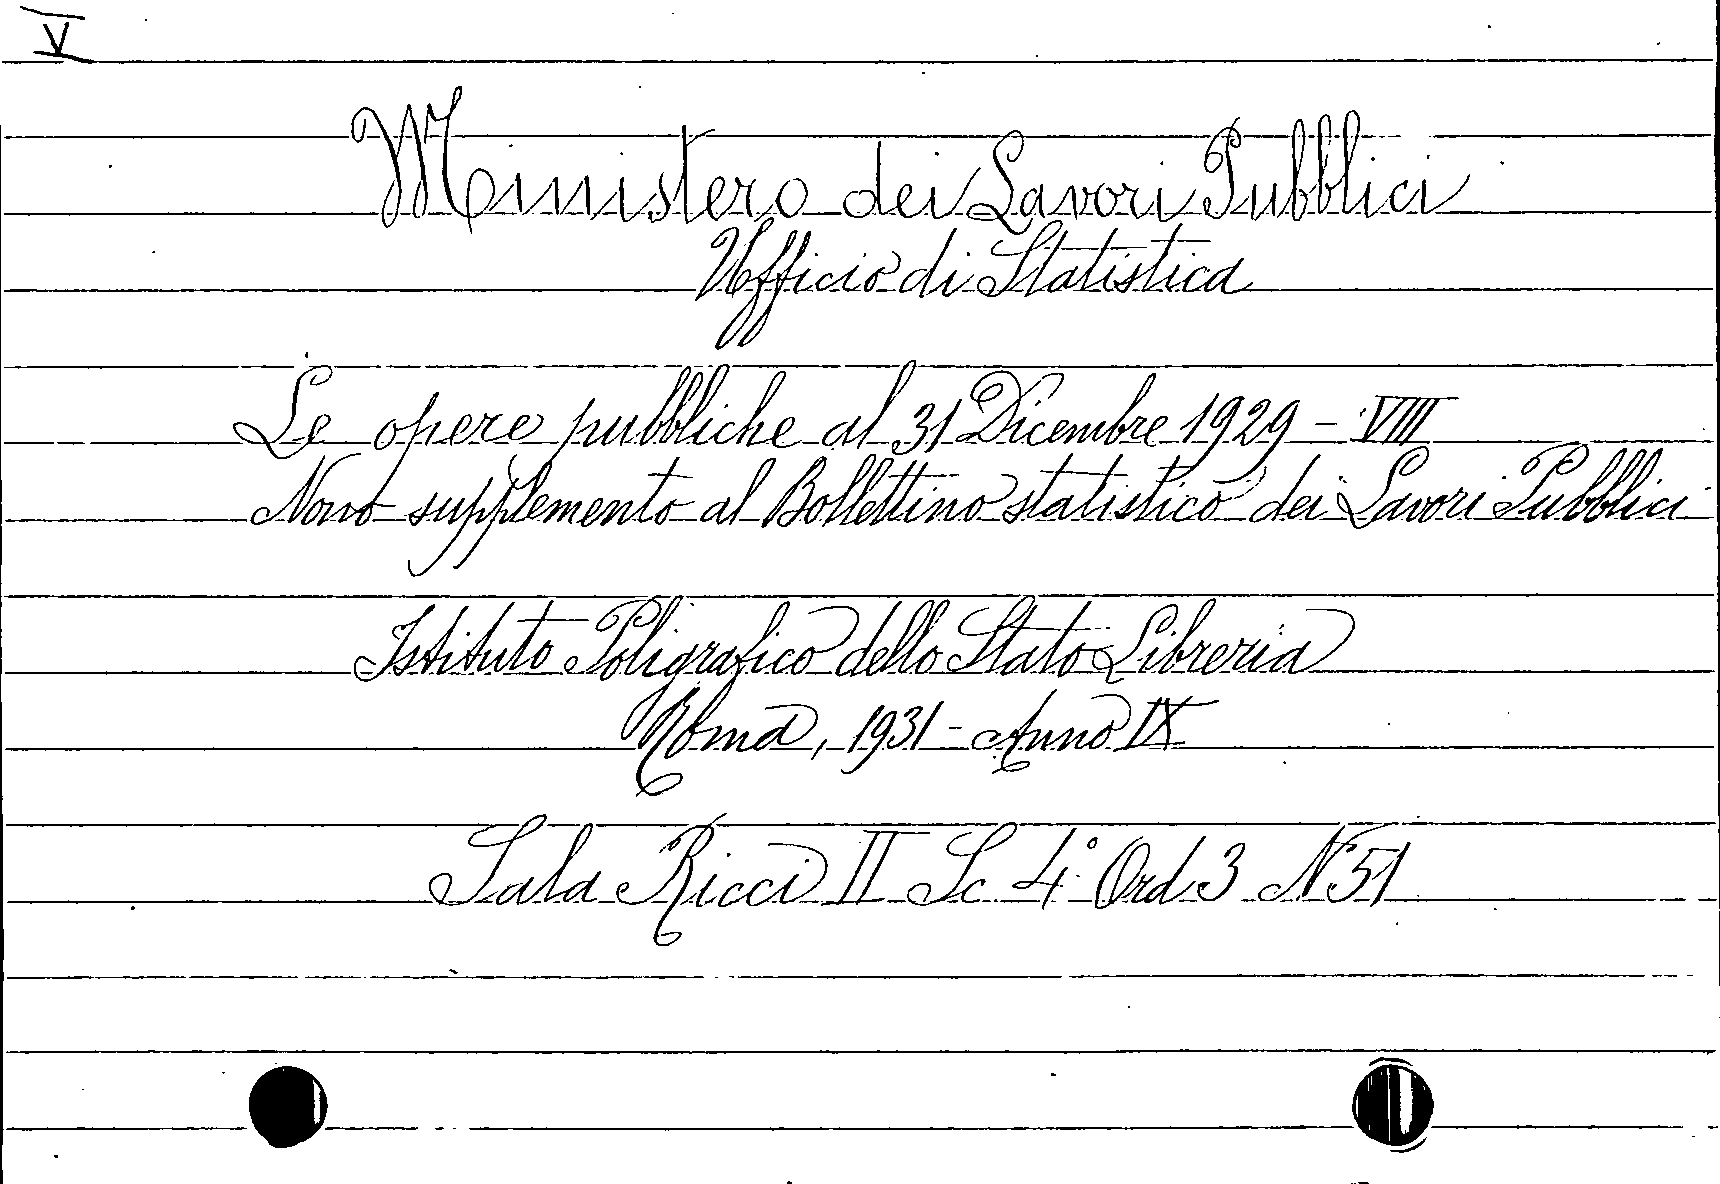 V
Ministero dei Lavori Pubblici
Ufficio di Statistica
Le opere pubbliche al 31 Dicembre 1929 - VIII
Nono supplemento al Bollettino statistico dei Lavori Pubblici
Istituto Poligrafico dello Stato Libreria
Roma, 1931 - Anno IX
Sala Ricci II Sc 4° Ord 3 N° 51